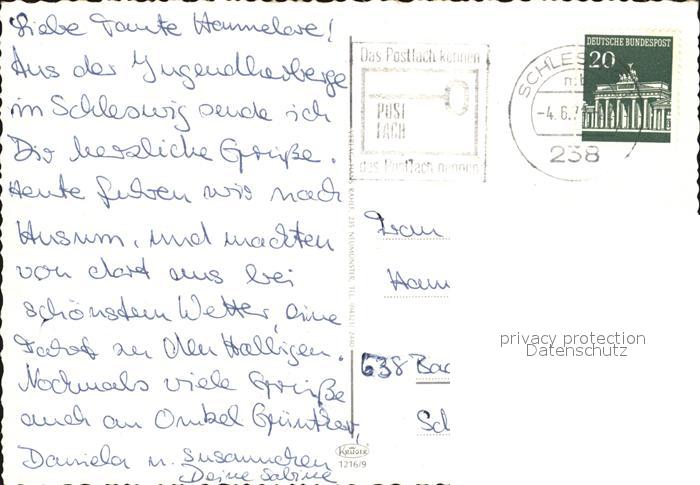 Liebe Tante Hannelore!
Aus der Jugendherberge
im Schleswig sende ich
Dir herzliche Grüße.
Heute fuhren wir nach
Husum, und machten
von dort aus bei
schönstem Wetter, eine
Fahrt zu den Halligen.
Nochmals viele Grüße
auch an Onkel Günther,
Daniela u. Susannchen
Deine Sabine
Das Postfach kennen
POST
FACH
das Postfach nennen
SCHLES
-4.6.7
238
DEUTSCHE BUNDESPOST
20
Frau
Hann
638 Bad
Sch
KRÜGER
1216/9
privacy protection
Datenschutz